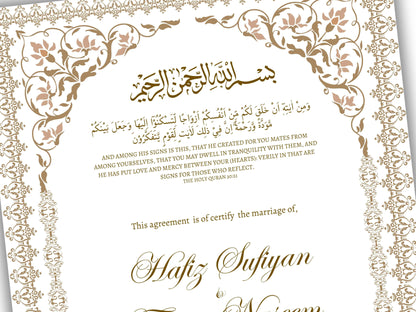 بسم الله الرحمن الرحيم
وَمِنْ آيَتِهِ أَنْ خَلَقَ لَكُمْ مِنْ أَنْفُسِكُمْ أَزْوَاجًا لِتَسْكُنُوٓا إِلَيْهَا وَجَعَلَ بَيْنَكُمْ
مَوَدَّةً وَرَحْمَةً إِنَّ فِي ذَلِكَ لَآيَتٍ لِقَوْمٍ يَتَفَكَّرُونَ
AND AMONG HIS SIGNS IS THIS, THAT HE CREATED FOR YOU MATES FROM
AMONG YOURSELVES, THAT YOU MAY DWELL IN TRANQUILITY WITH THEM, AND
HE HAS PUT LOVE AND MERCY BETWEEN YOUR (HEARTS): VERILY IN THAT ARE
SIGNS FOR THOSE WHO REFLECT.
THE HOLY QURAN 30:21
This agreement is of certify the marriage of,
Hafiz Sufiyan
&